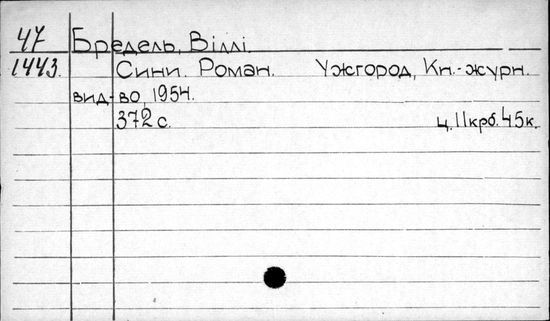 47 Бредель, Віллі.
1443. Сини. Роман. Ужгород, Кн.-журн.
вид-во, 1954.
372 с. ц. 11 крб. 45 к.